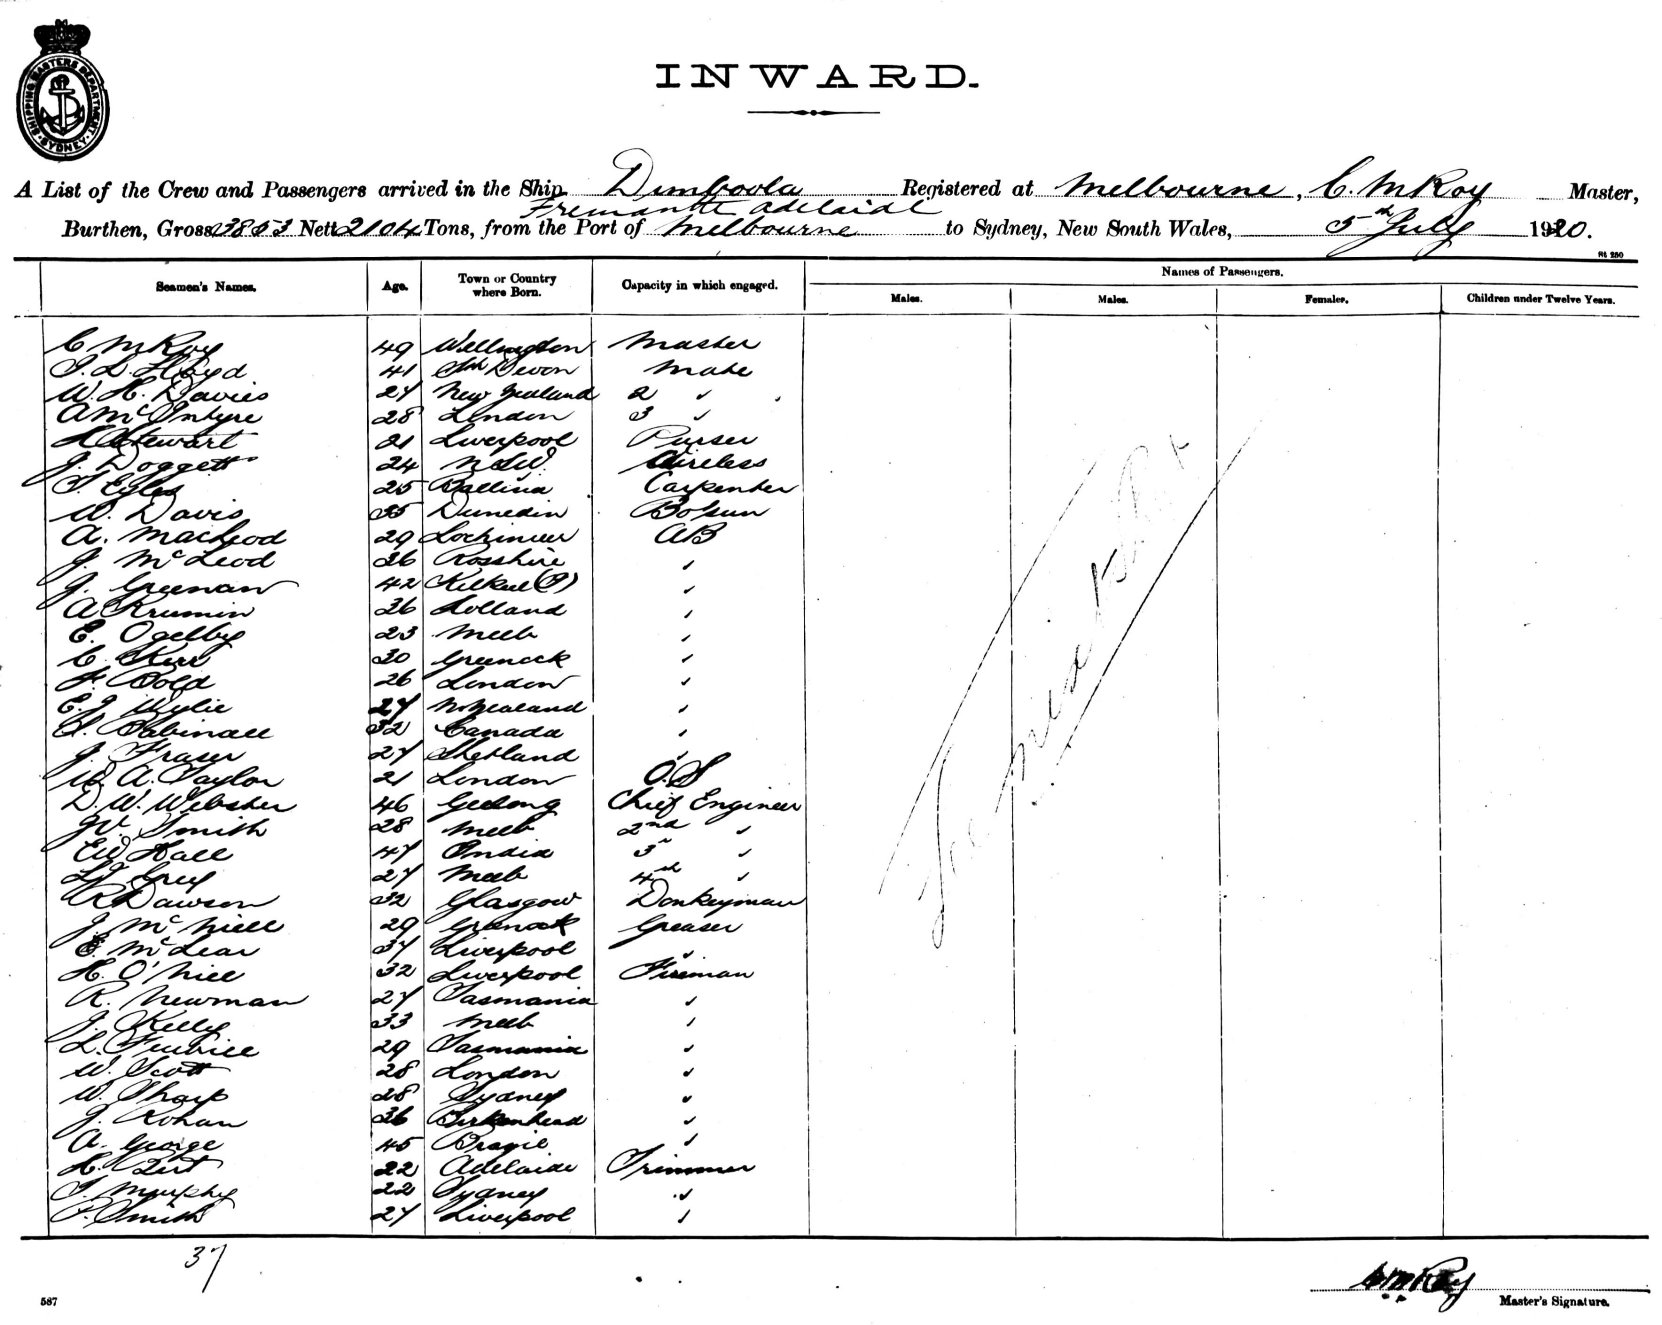 SHIPPING MASTERS DEPARTMENT SYDNEY
INWARD.
A List of the Crew and Passengers arrived in the Ship Dimboola Registered at Melbourne, C. McKoy Master,
Fremantle Adelaide
Burthen, Gross 3853 Nett 2104 Tons, from the Port of Melbourne to Sydney, New South Wales, 5th July 1920.
St 250
Seamen's Names. Age. Town or Country where Born. Capacity in which engaged. Names of Passengers.
Males. Males. Females. Children under Twelve Years.
C McKoy 49 Wellington Master
J. L. Lloyd 41 Sth Devon Mate
W. H. Davies 27 New Zealand 2 "
A McIntyre 28 London 3 "
Stewart 21 Liverpool Purser
J. Doggett 24 NSW Wireless
Eyles 25 Ballina Carpenter
W. Davis 35 Dunedin Bosun
A. MacLeod 29 AB
J. McLeod 36 Rosshire "
J. Greenan 42 Kilkeel (I) "
A Krumin 36 Holland "
E. Ogelby 23 Melb "
C. Kerr 30 Greenock "
F. Bold 26 London "
E. J Wylie 27 N. Zealand "
32 Canada "
J. Fraser 27 Shetland "
W A. Taylor 21 London O.S
D. W. Webster 46 Geelong Chief Engineer
J W Smith 28 Melb 2nd "
E W Hall 47 India 3r "
Grey 27 Melb 4th "
R Dawson 32 Glasgow Donkeyman
J. McNiell 29 Greenock Greaser
E. McLear 37 Liverpool "
H. O'Niel 32 Liverpool Fireman
R. Newman 27 Tasmania "
J. Kelly 33 Melb "
L. 29 Tasmania "
W. Scott 28 London "
W. Sharp 28 Sydney "
J. Rohan 36 Birkenhead "
A. George 45 Brazil "
H. 22 Adelaide Trimmer
J. Murphy 22 Sydney "
P. Smith 27 Liverpool "
37
C McKoy
Master's Signature.
587